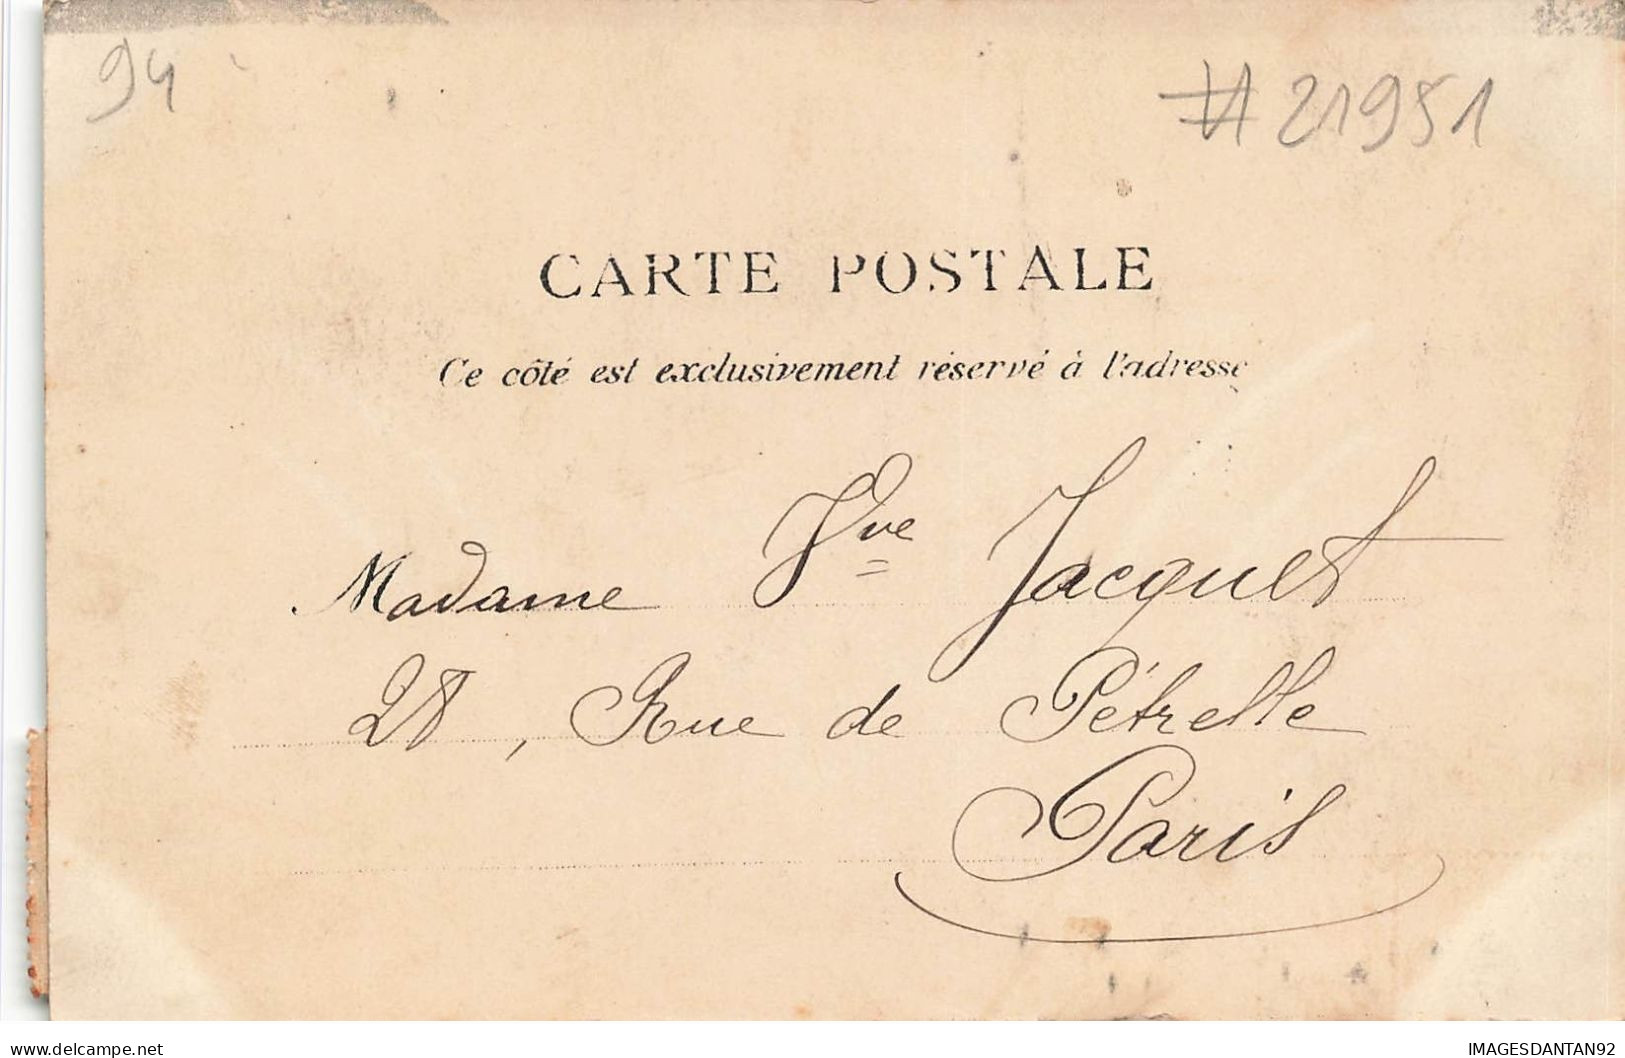 94
#21951
CARTE POSTALE
Ce côté est exclusivement réservé à l'adresse
Madame Vve Jacquet
28, Rue de Pétrelle
Paris
delcampe.net
IMAGESDANTAN92